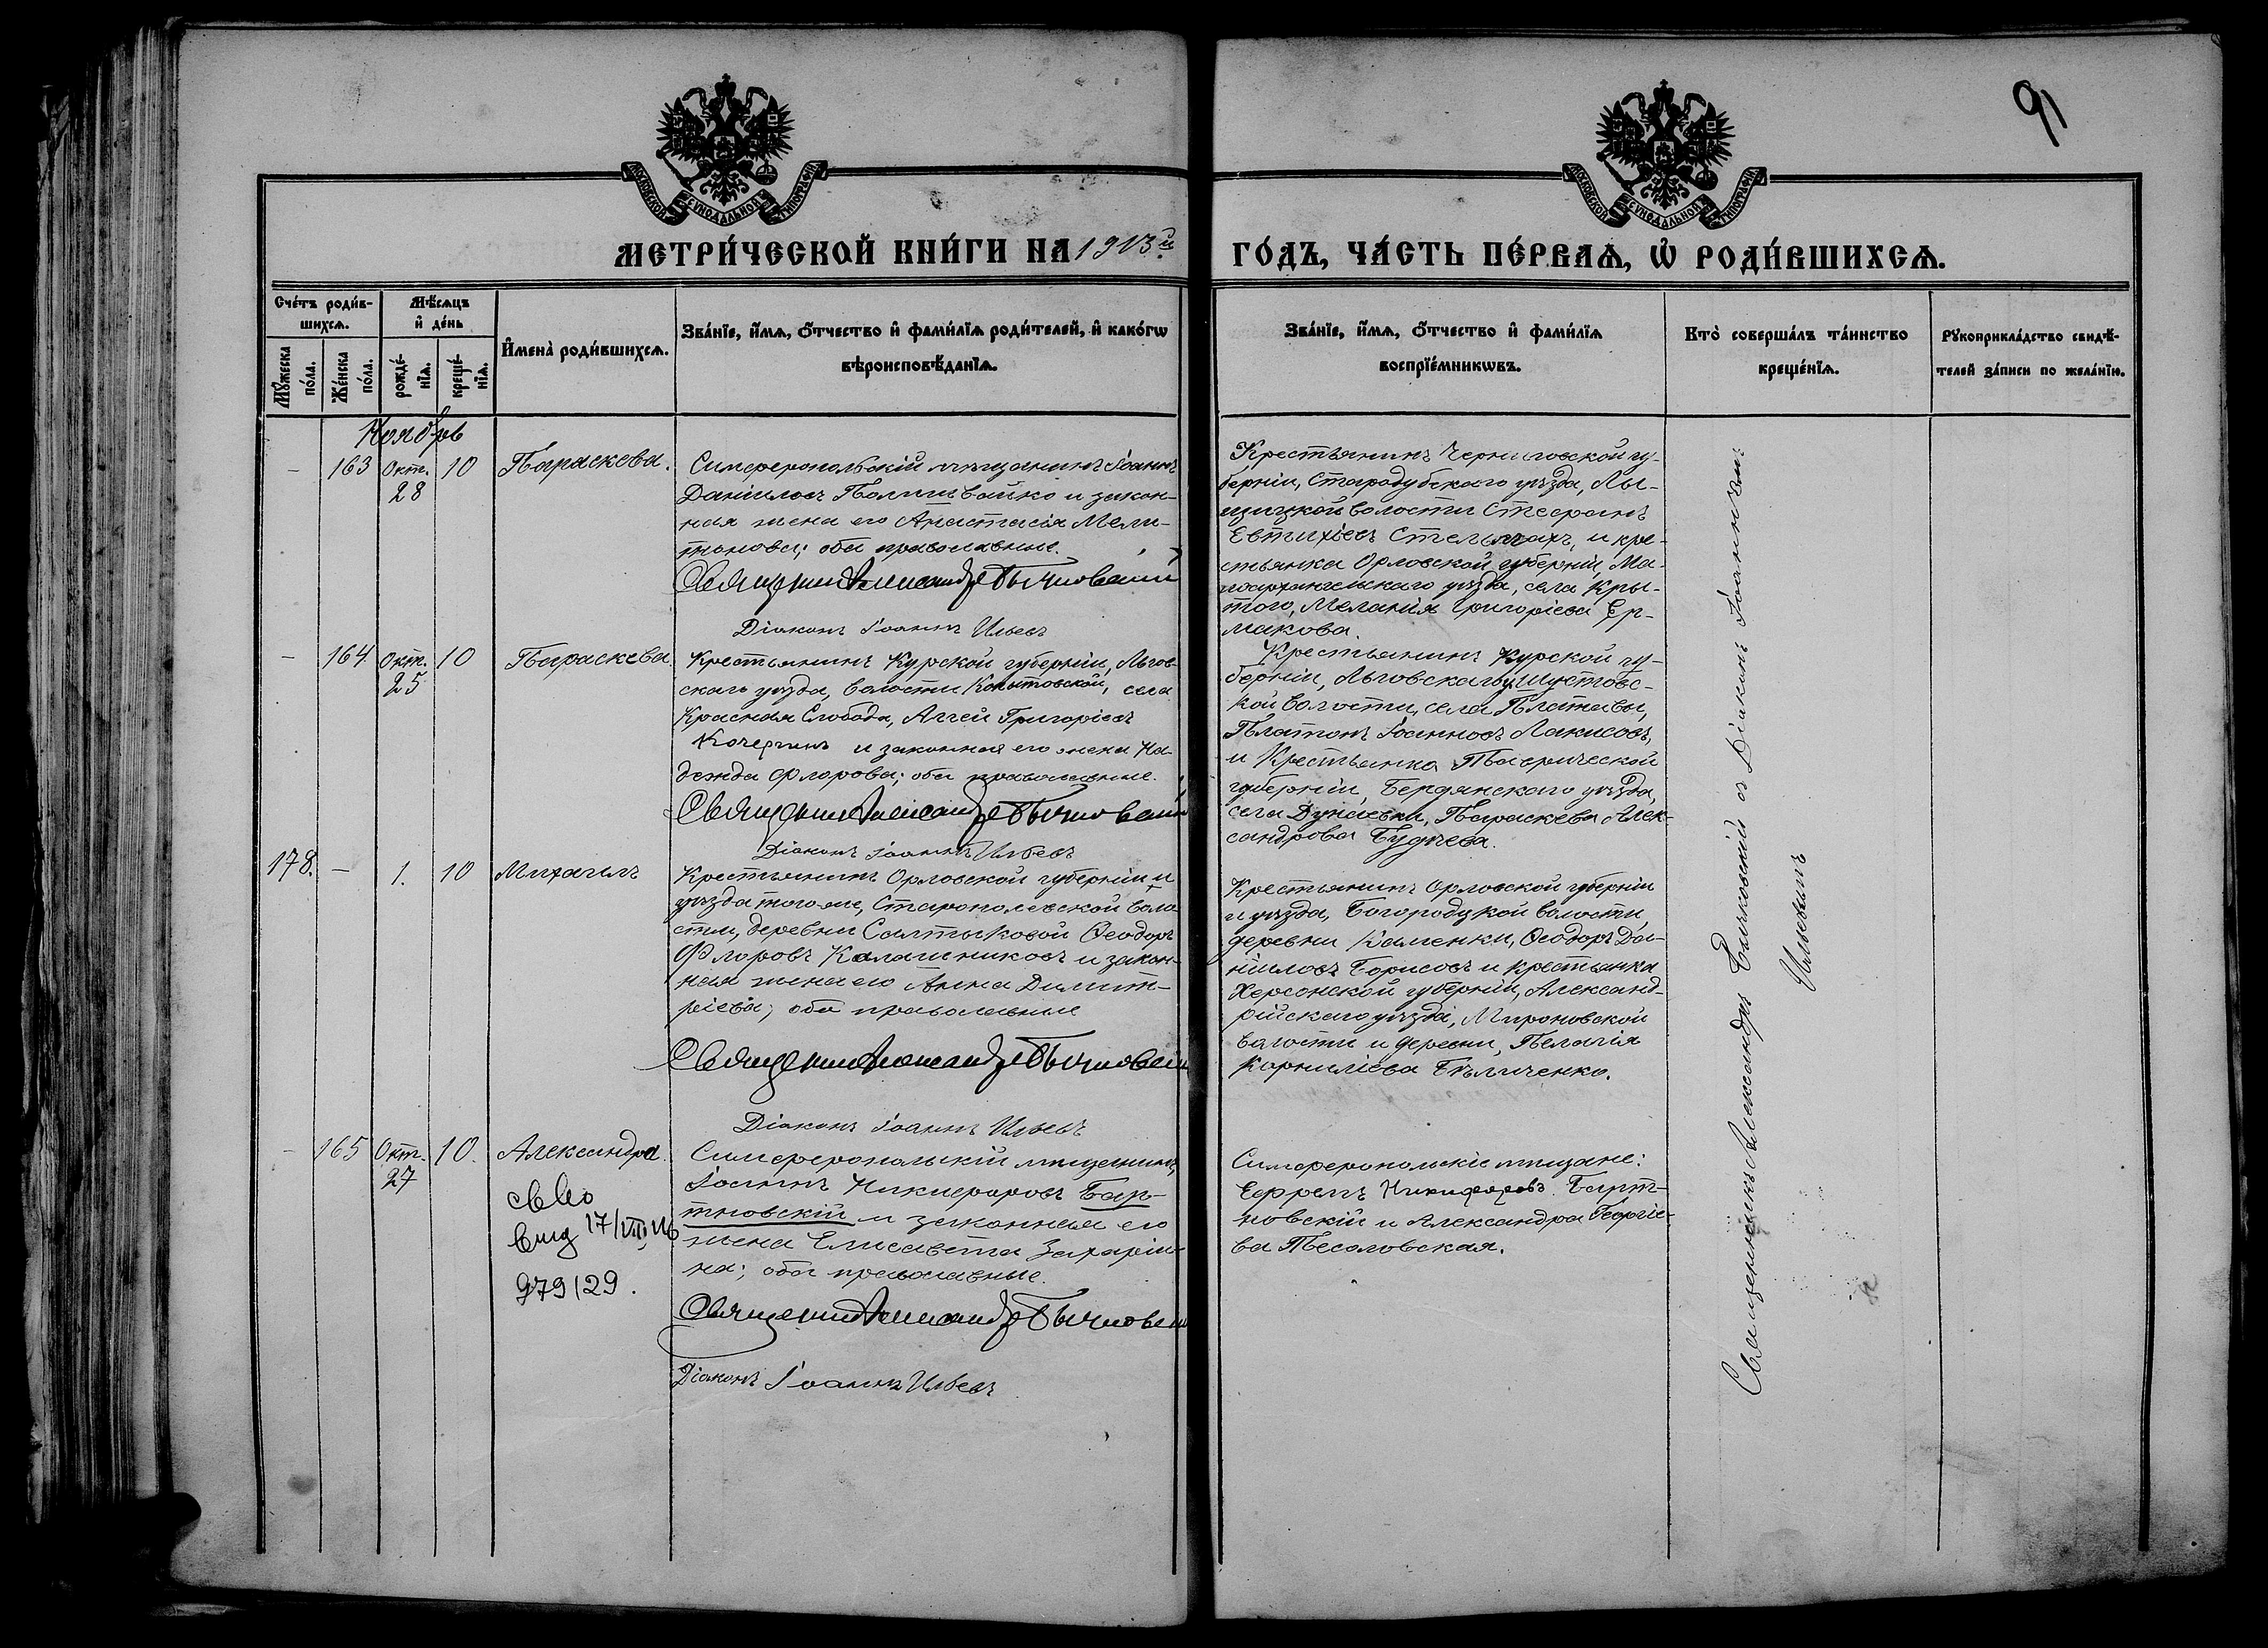 91
МОСКОВСКОЙ СѴНОДАЛЬНОЙ ТИПОГРАФІИ
МОСКОВСКОЙ СѴНОДАЛЬНОЙ ТИПОГРАФІИ
МЕТРИ́ЧЕСКОЙ КНИ́ГИ НА 1913й
ГО́ДЪ, ЧА́СТЬ ПЕ́РВАѦ, Ѡ҆ РОДИ́ВШИХСѦ.
Сче́тъ роди́в-
шихсѧ.
Мѣ́сѧцъ
и҆ де́нь
Мꙋ́жеска
по́ла.
Же́нска
по́ла.
рожде́-
нїѧ.
креще́-
нїѧ.
И҆мена̀ роди́вшихсѧ.
Зва́нїе, и҆́мѧ, ѻ҆́тчество и҆ фами́лїѧ роди́телей, и҆ како́гѡ
вѣроисповѣ́данїѧ.
Зва́нїе, и҆́мѧ, ѻ҆́тчество и҆ фами́лїѧ
воспрїе́мникѡвъ.
Кто̀ соверша́лъ та́инство
креще́нїѧ.
Рꙋкоприкла́дство свидѣ́-
телей за́писи по жела́нїю.
Ноябрь
- 163 Окт. 28 10 Параскева.
Симферопольскій мѣщанинъ Іоаннъ
Даніиловъ и закон-
ная жена его Анастасія Мели-
тонова; оба православные.
Священникъ Александръ Бычковскій
Діаконъ Іоаннъ Ильевъ
Крестьянинъ Черниговской гу-
берніи, Стародубскаго уѣзда, Лы-
щицкой волости Стефанъ
Евтихіевъ Стельмахъ, и кре-
стьянка Орловской губерніи, Ма-
лоархангельскаго уѣзда, села Кры-
того, Меланія Григоріева Ер-
макова.
- 164 Окт. 25 10 Параскева.
Крестьянинъ Курской губерніи, Льгов-
скаго уѣзда, волости села
Красная Слобода, Аггей Григоріевъ
Кочергинъ и законная его жена На-
дежда Флорова; оба православные.
Священникъ Александръ Бычковскій
Діаконъ Іоаннъ Ильевъ
Крестьянинъ Курской гу-
берніи, Льговскаго у. Шустовс-
кой волости, села Платавы,
Платонъ Іоанновъ
и Крестьянка Таврической
губерніи, Бердянскаго уѣзда,
села Дунаевки, Параскева Алек-
сандрова
178. - 1. 10 Михаилъ
Крестьянинъ Орловской губерніи и
уѣзда того же, Старополевской воло-
сти, деревни Салтыковой Ѳеодоръ
Флоровъ Калашниковъ и закон-
ная жена его Анна Димит-
ріева; оба православные
Священникъ Александръ Бычковскій
Діаконъ Іоаннъ Ильевъ
Крестьянинъ Орловской губерніи
и уѣзда, Богородцкой волости,
деревни Каменки, Ѳеодоръ Да-
ніиловъ Борисовъ и крестьянка
Херсонской губерніи, Александ-
рійскаго уѣзда, Мироновской
волости и деревни, Пелагія
Корниліева Бѣличенко.
- 165 Окт. 27 10. Александра.
979/29.
Симферопольскій мѣщанинъ,
Іоаннъ Никифоровъ Барт-
новскій и законная его
жена Елисавета Захаріи-
на; оба православные.
Священникъ Александръ Бычковскій
Діаконъ Іоаннъ Ильевъ
Симферопольскіе мѣщане:
Ефремъ Никифоровъ Барт-
новскій и Александра Георгіе-
ва
Священникъ Александръ Бычковскій съ Діакономъ Іоанномъ
Ильевымъ